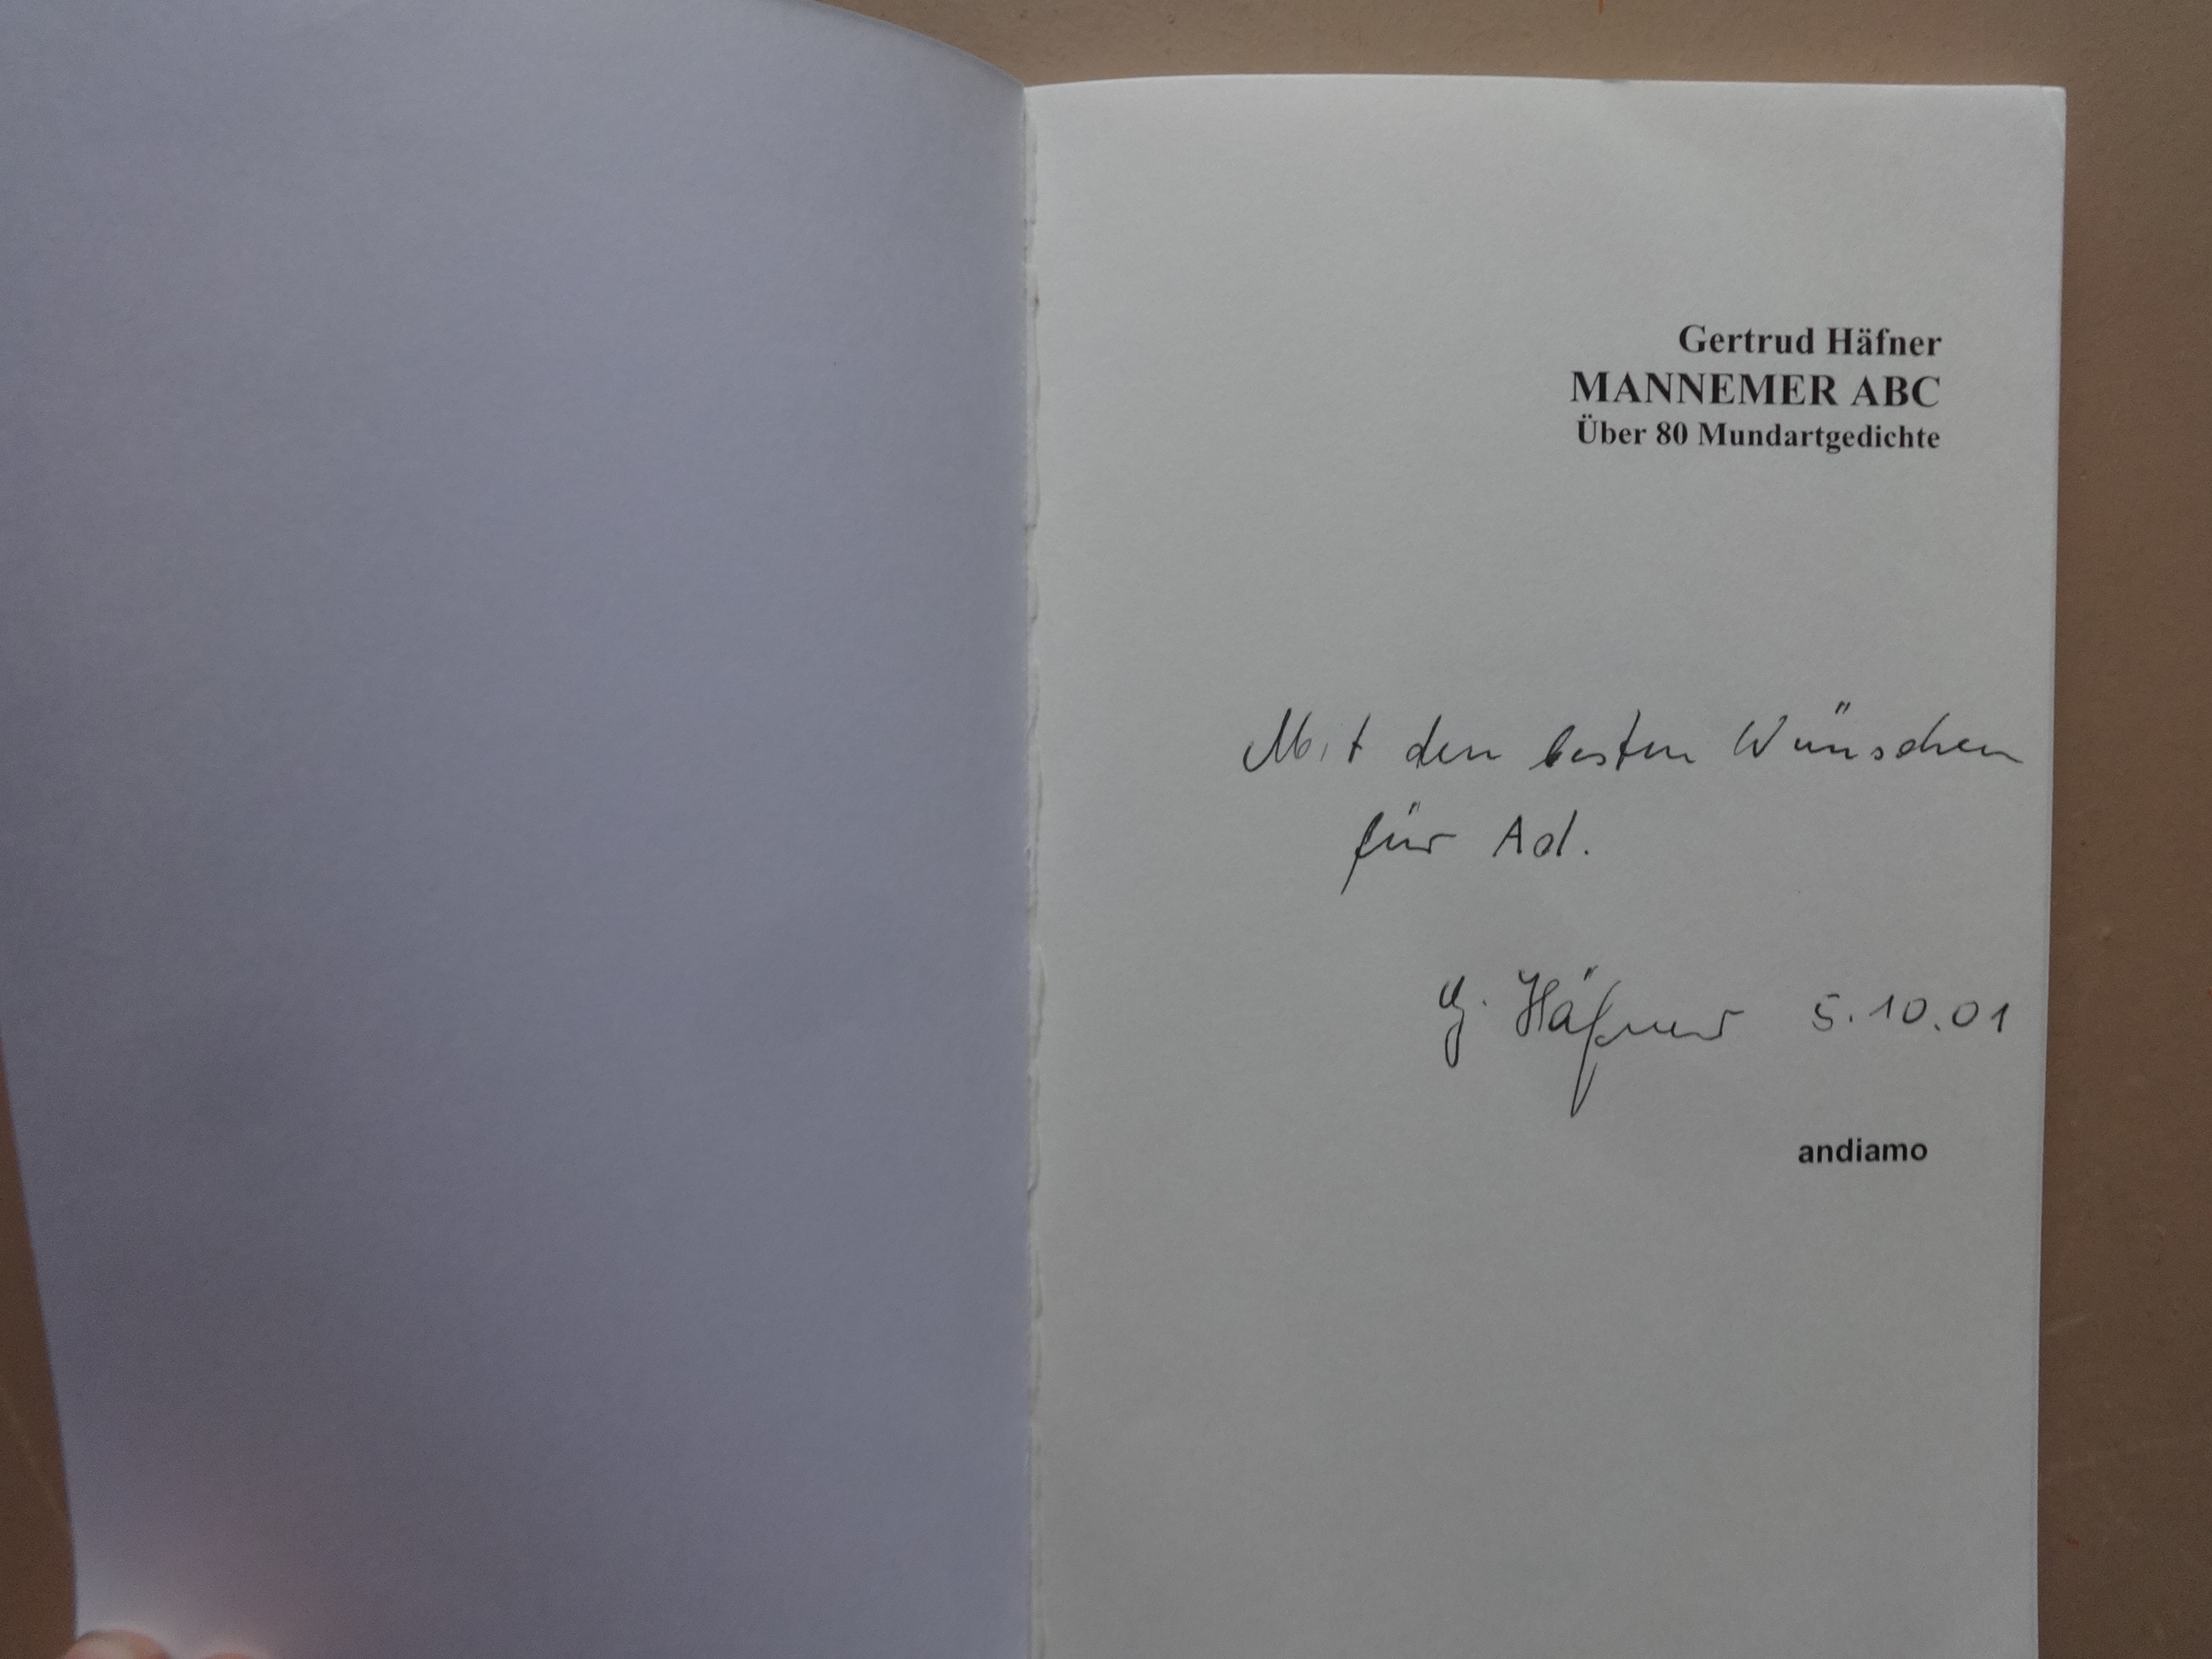 Gertrud Häfner
MANNEMER ABC
Über 80 Mundartgedichte
Mit den besten Wünschen
für Ad.
G. Häfner 5.10.01
andiamo